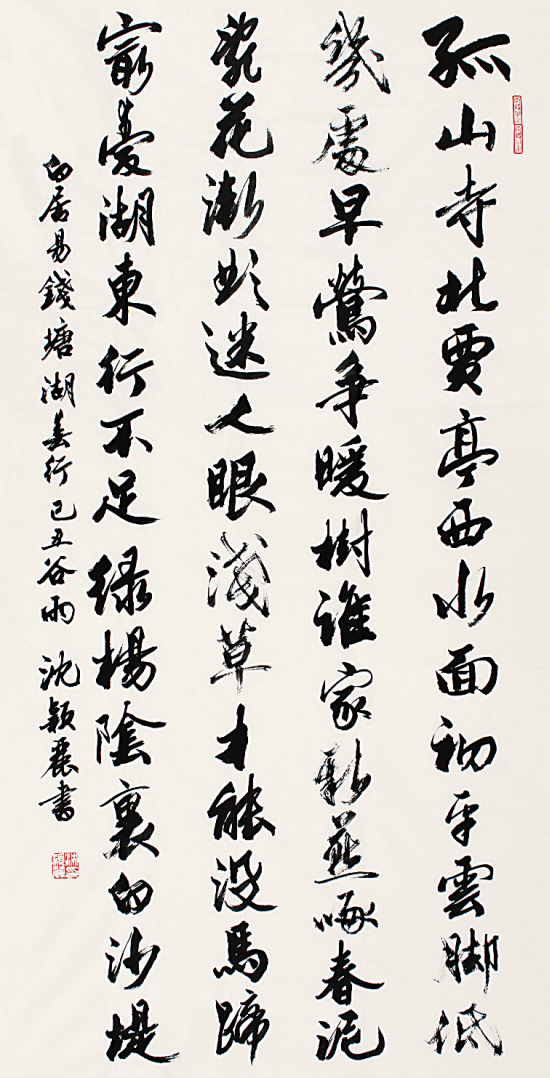 孤山寺北賈亭西水面初平雲脚低
幾處早鶯爭暖樹誰家新燕啄春泥
亂花漸欲迷人眼淺草才能沒馬蹄
最愛湖東行不足綠楊陰裏白沙堤
白居易錢塘湖春行 己丑谷雨 沈穎麗書